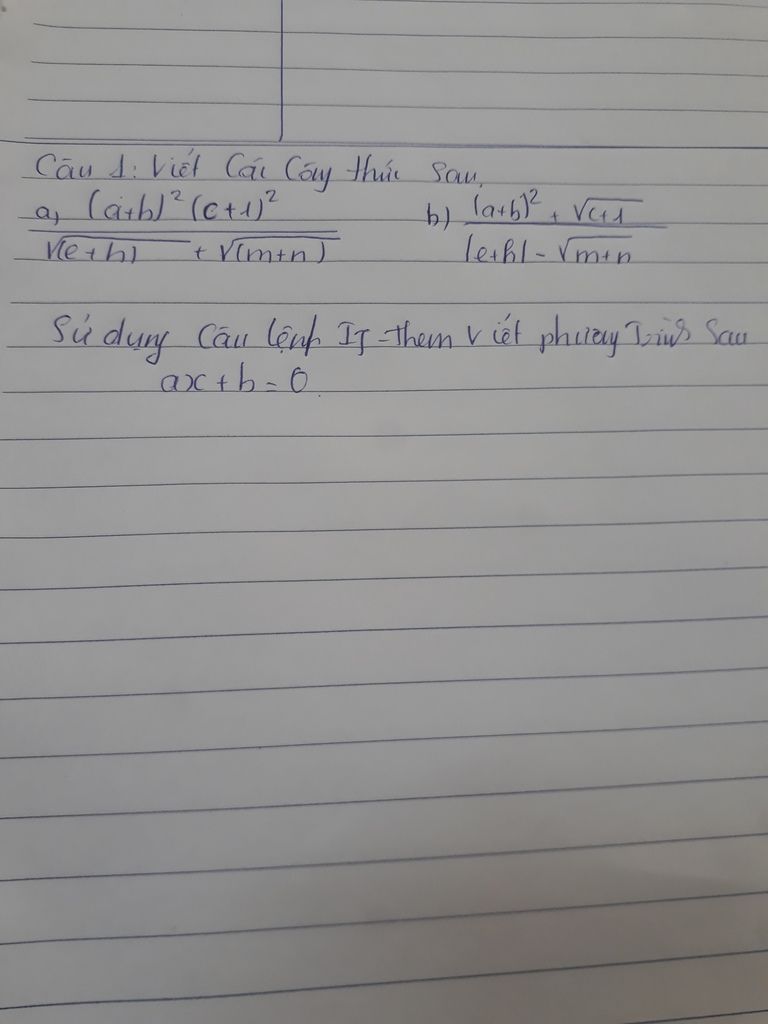 Câu 1: Viết Các Công thức sau,
a, (a+b)² (c+1)² / √(e+h) + √(m+n)
b) (a+b)² + √c+1 / |e+h| - √m+n
Sử dụng Câu lệnh If-them Viết phương Trình Sau
ax + b = 0